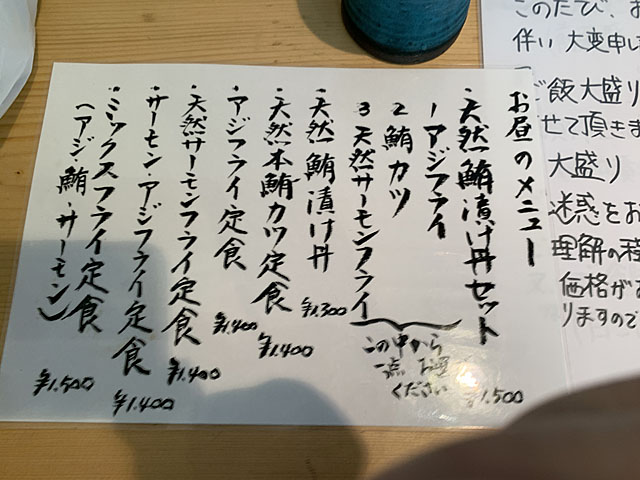 お昼のメニュー
・天然鮪漬け丼セット ¥1,500
1 アジフライ
2 鮪カツ
3 天然サーモンフライ
この中から
一点お選
ください
・天然鮪漬け丼 ¥1,300
・天然本鮪カツ定食 ¥1,400
・アジフライ定食 ¥1,400
・天然サーモンフライ定食 ¥1,400
・サーモン・アジフライ定食 ¥1,400
・ミックスフライ定食
(アジ・鮪・サーモン) ¥1,500
このたび、お
伴い 大変申し
ご飯大盛り
せて頂きま
大盛り
迷惑をお
理解の程
価格が
りますので